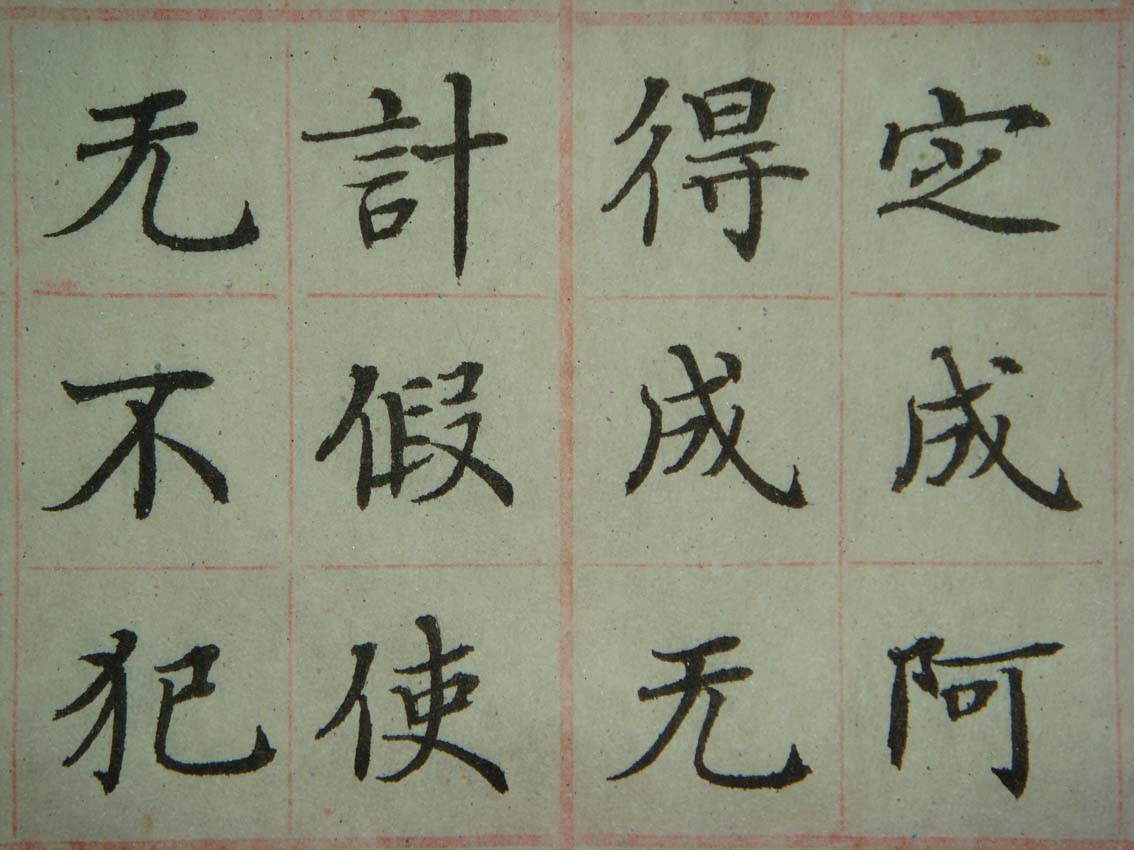 定成阿
得成无
計假使
无不犯